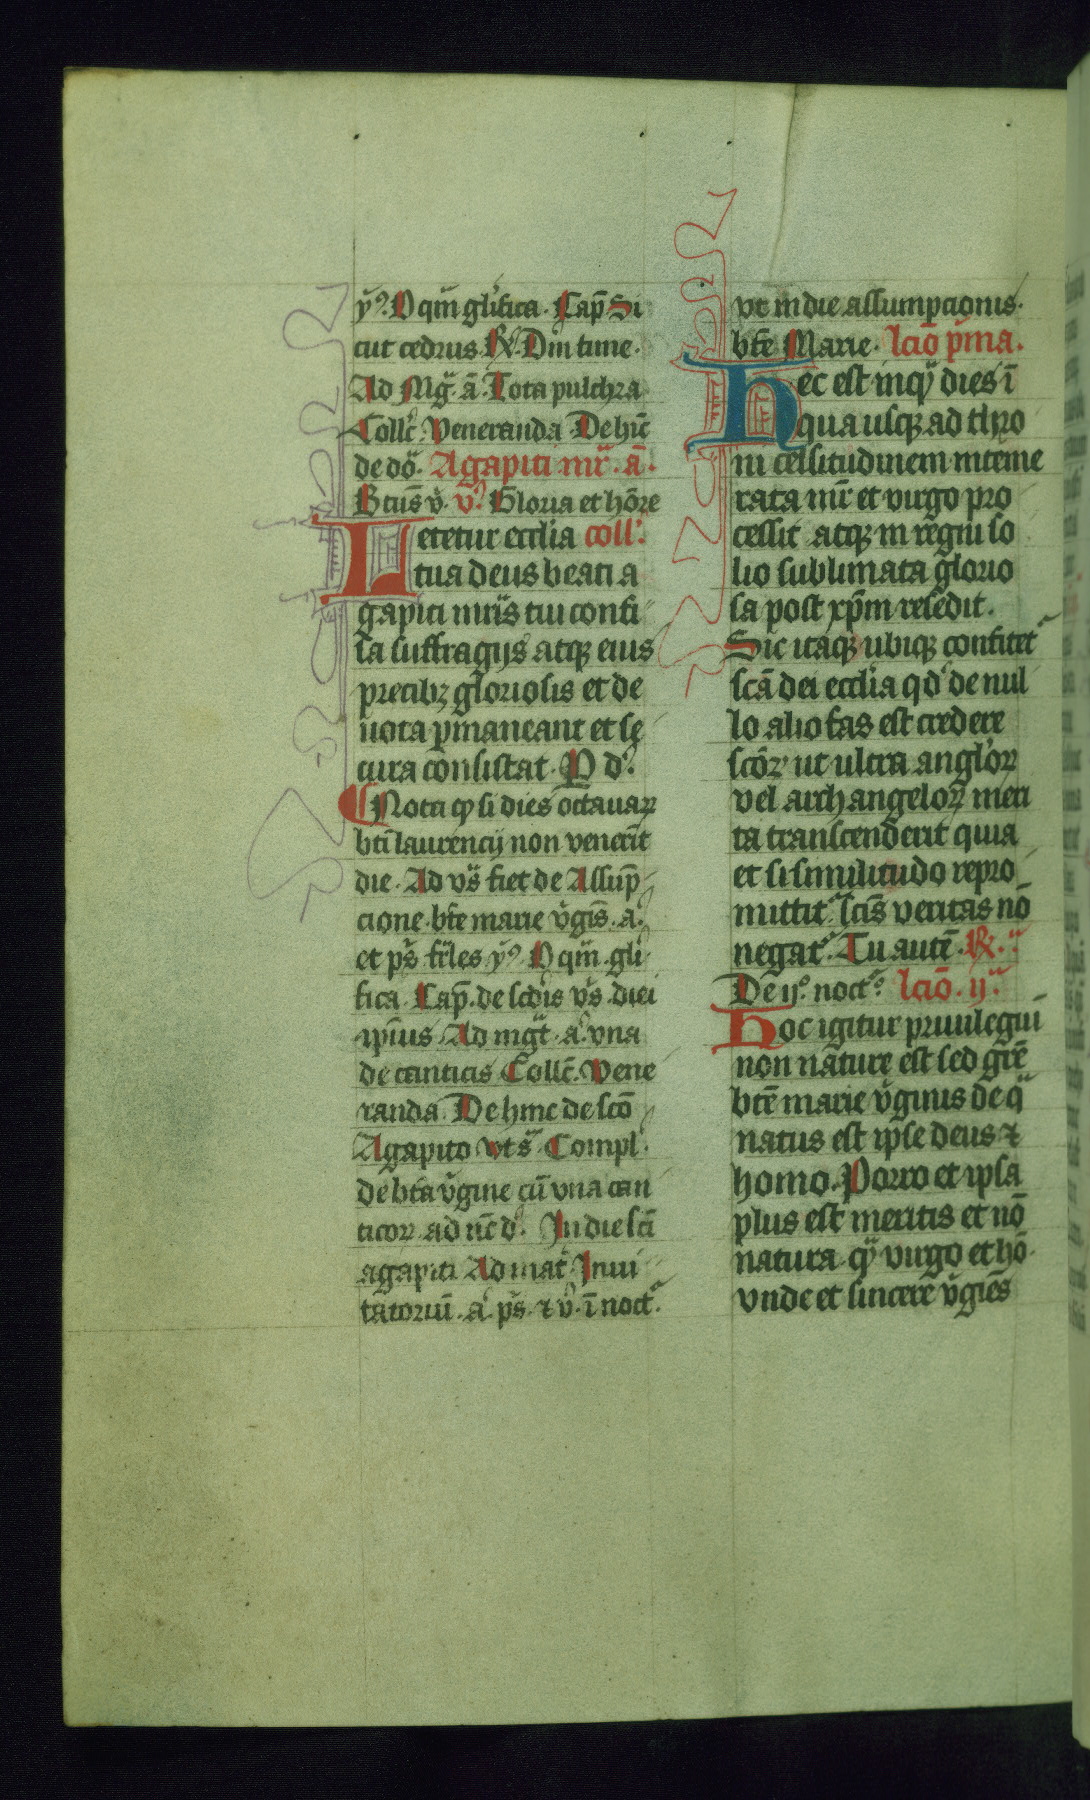 ẏꝰ. O qm̄ glīfica. Cap̄ Si
cut cedrus ℟ Dm̄ tune.
Ad Mg̃. ā. Tota pulchra
Collc̄. Veneranda De hīc
de dō. Agapiti mr̄. ā.
Btūs v̾. ℣ Gloria et hōre
Letetur eccl̄ia coll'.
tua deus beati a
gapiti mr̄is tui confi
sa suffragijs atqꝫ eius
precibꝫ gloriosis et de
uota ꝑmaneant et se
cura cōnsistat. P d̾.
Nota ꝙ si dies octauaꝝ
bt̄i laurencij non venerit
die. Ad vs̄ fiet de Assūp
cione bt̄e marie v̾gīs. a.
et p̄s fr̄les ẏꝰ O qm̄. gl̄i
fica. Cap̄. de scd̄is vs̄ diei
ip̄ius Ad mḡt. a. vna
de canticis Collc̄. Vene
randa. De hinc de scō
Agapito vt s̄. Compl'.
de bt̄a v̾gine cū vna can
ticoꝝ ad nc̄ d̾. In die sc̄i
agapiti Ad mat̄ Inui
tatoriū. a. p̄s. ⁊ v̾. ī noct̄.
vt in die assumpcionis.
bt̄e Marie. lc̄io p̄ma.
Hec est inqͣ dies ī
qua usqꝫ ad thro
ni celsitudinem inteme
rata mr̄ et virgo pro
cessit atqꝫ in regni so
lio sublimata glorio
sa post xp̄m resedit.
Sic itaqꝫ ubiqꝫ confitet᷑
scā dei eccl̄ia qd̾ de nul
lo alio fas est credere
scōꝝ ut ultra angl̄oꝝ
vel archangeloꝝ meri
ta transcenderit quia
et si similitudo repro
mittit᷑ scīs veritas nō
negat᷑. Tu autē. ℟.
De ij̊. noct̄. lc̄io. ij.
Hoc igitur priuilegiū
non nature est sed grē
btē marie v̾ginis de qͣ
natus est ip̄se deus ⁊
homo. Porro et ipsa
plus est meritis et nō
natura qͣ virgo et hō.
vnde et sincere v̾giēs